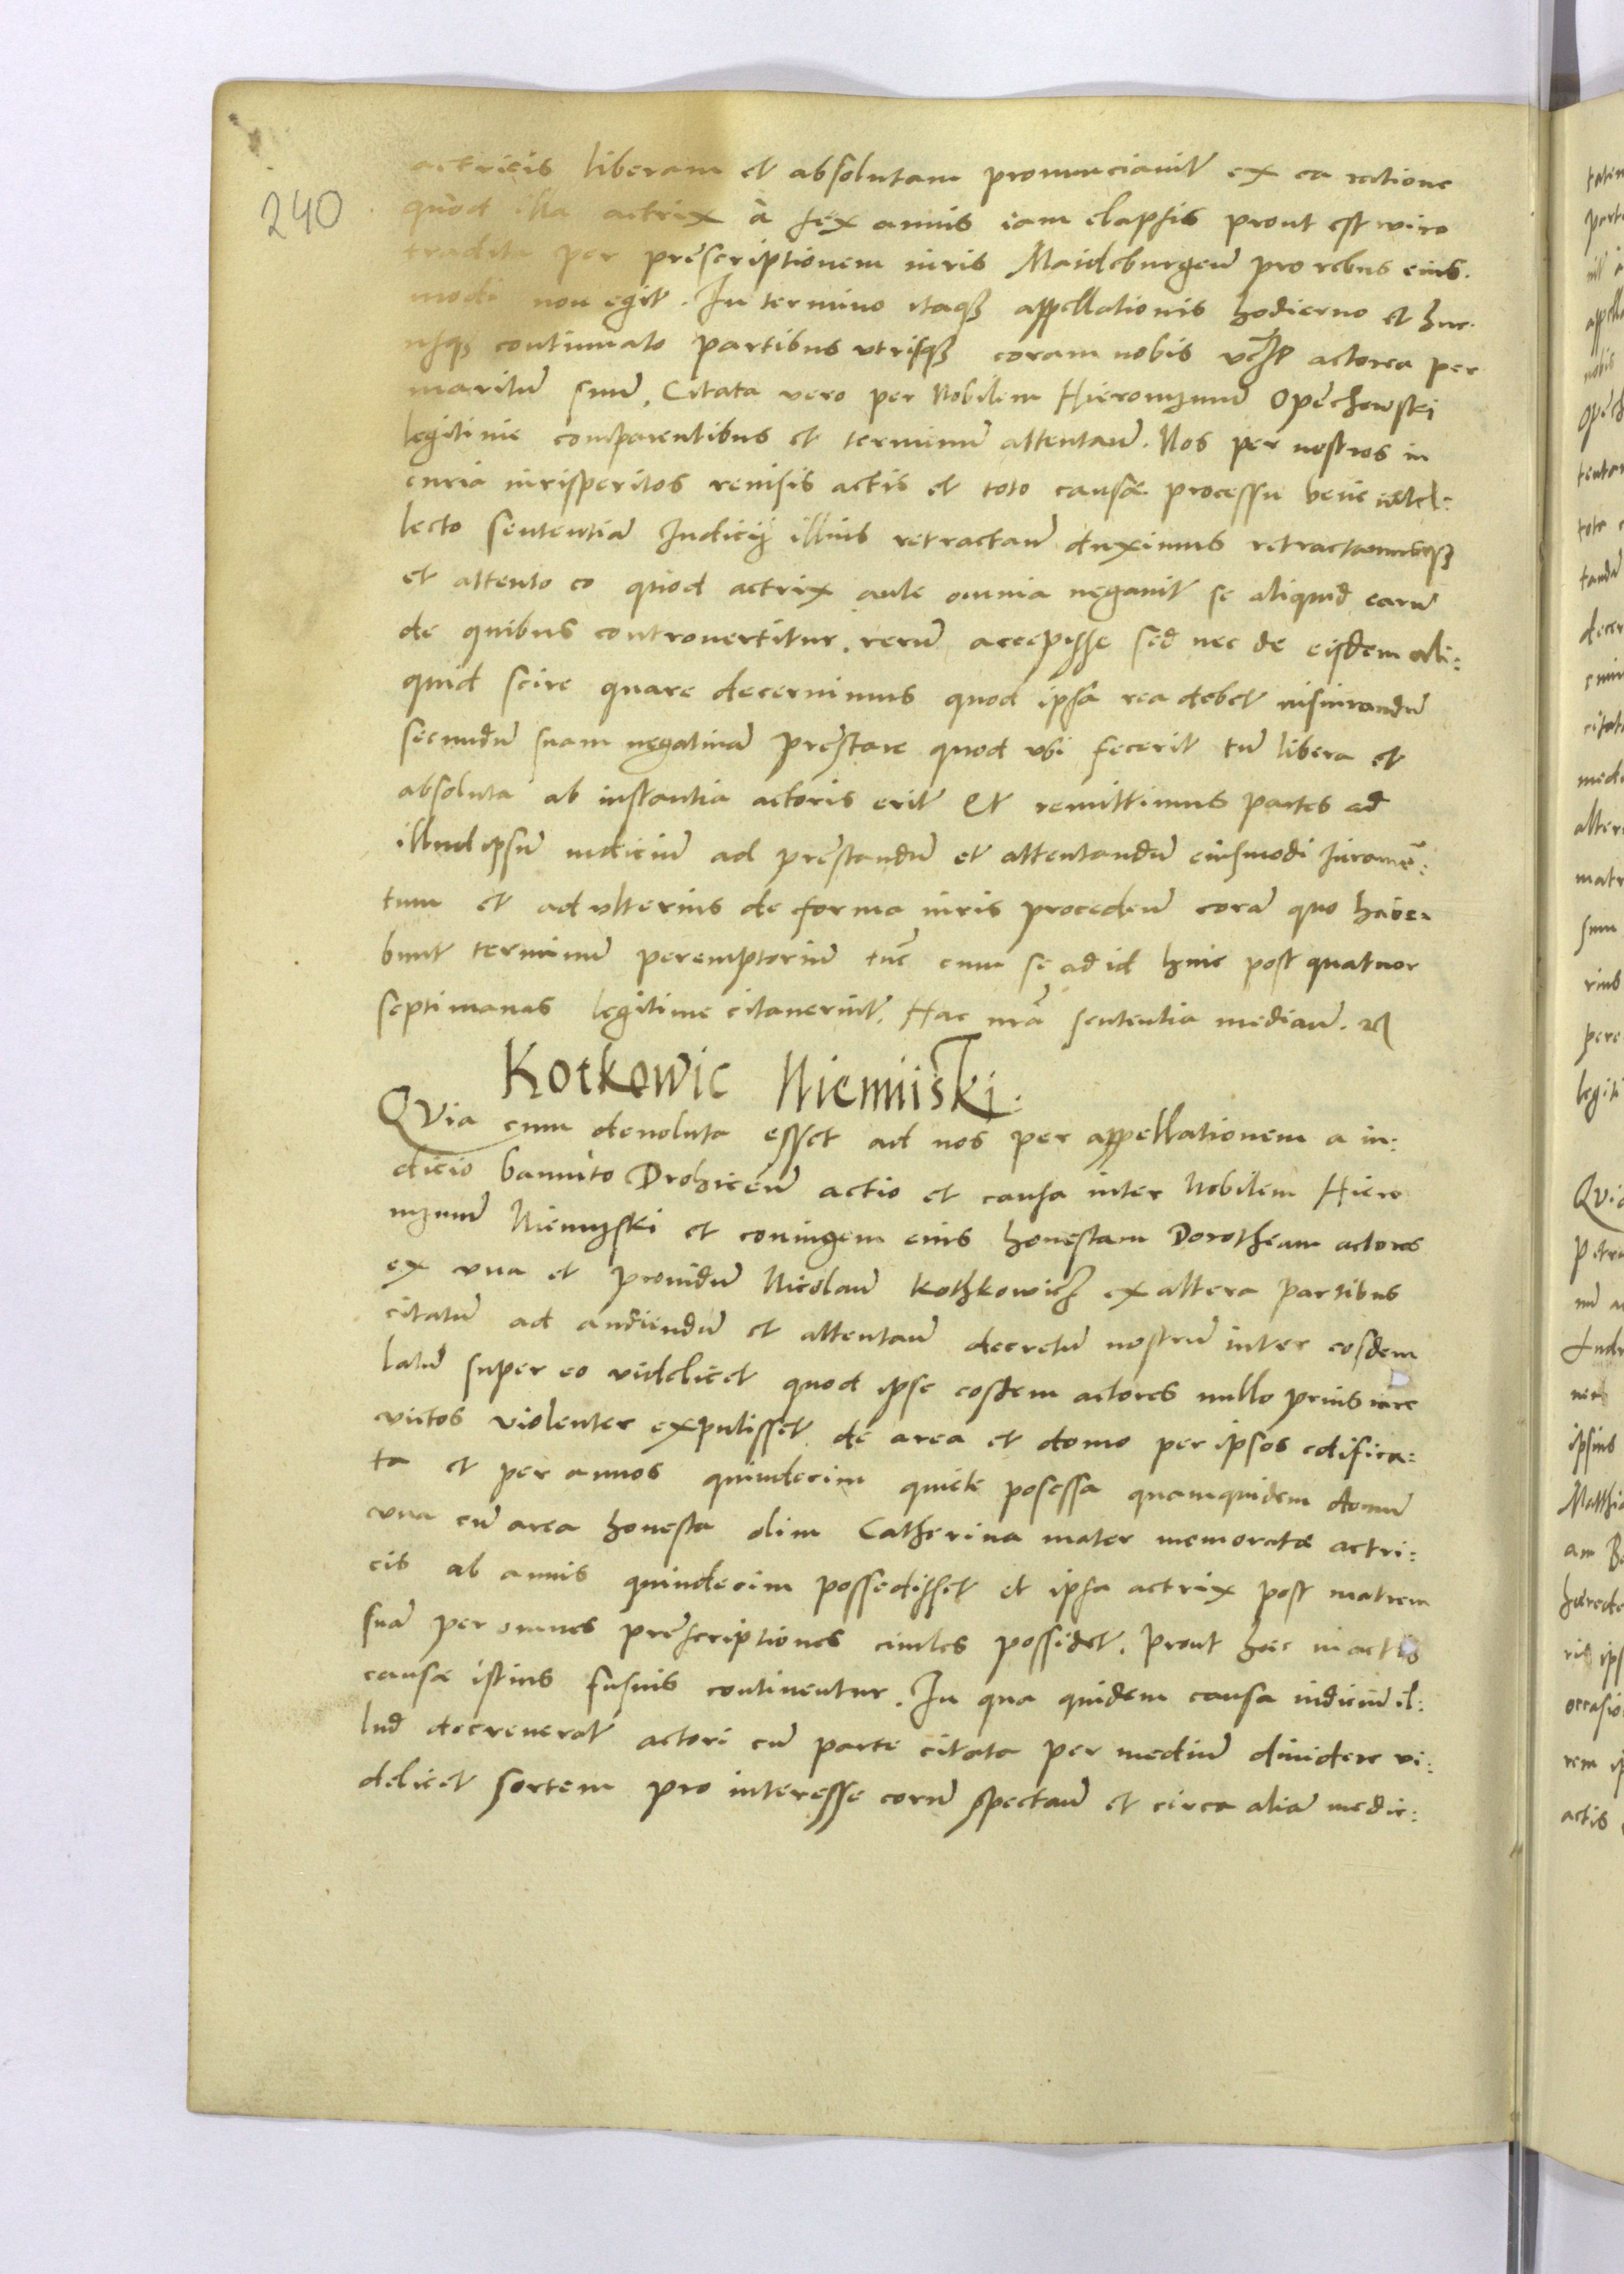 240
actricis liberam et absolutam pronunciauit ex ea ratione
quod illa actrix à sex annis iam elapsis prout est viro
tradita per prescriptionem iuris Maideburgeñ pro rebus eius
modi non egit. In termino itaq3 appellationis hodierno et huc
usq3 continuato partibus vtrisq3 coram nobis actorea per
maritū suū, Citata vero per Nobilem Hieronymū Opechowski
legitime comparentibus et terminū attentañ. Nos per nostros in
curia iurisperitos reuisis actis et toto causæ processu bene intel:
lecto sententiā Iudicij illius retractañ duximus retractamusq3
et attento eo quod actrix aūte omnia negauit se aliquid earū
de quibus controuertitur, rerū accepisse sed nec de eisdem ali:
quid scire quare decernimus quod ipsa rea debet iusiurandū
secundū suam negatiuā prestare quod vbi fecerit tū libera et
absoluta ab instantia actoris erit Et remittimus partes ad
illud ipsū iudiciū ad prestandū et attentandū eiusmodi Iuramē:
tum et ad vlterius de forma iuris procedeñ corā quo habe:
bunt terminū peremptoriū tūc cum se ad id huic post quatuor
septimanas legitime citauerint. Hac nrā sententia mediañ. etc
Kotkowic Niemiiski:
QVia cum deuoluta esset ad nos per appellationem a iu:
dicio bannito Drohiceñ actio et causa inter Nobilem Hiero
nymū Niemyski et coniugem eius honestam Dorotheam actores
ex vna et prouidū Nicolaū Kothkowicz ex altera partibus
citatū ad audiendū et attentañ decretū nostrū inter eosdem
latū super eo videlicet quod ipse eosdem actores nullo prius iure
victos violenter expulisset de area et domo per ipsos edifica:
ta et per annos quindecim quiete posessa quamquidem domū
vna cū area honesta olim Catherina mater memoratæ actri:
cis ab annis quindecim possedisset et ipsa actrix post matrem
suā per omnes prescriptiones ciuiles possidet. Prout hæc in actis
causæ istius fusius continentur. In qua quidem causa iudiciū il:
lud decreuerat actori cū parte citata per mediū diuidere vi:
delicet sortem pro interesse eorū spectañ et circa aliā medie: